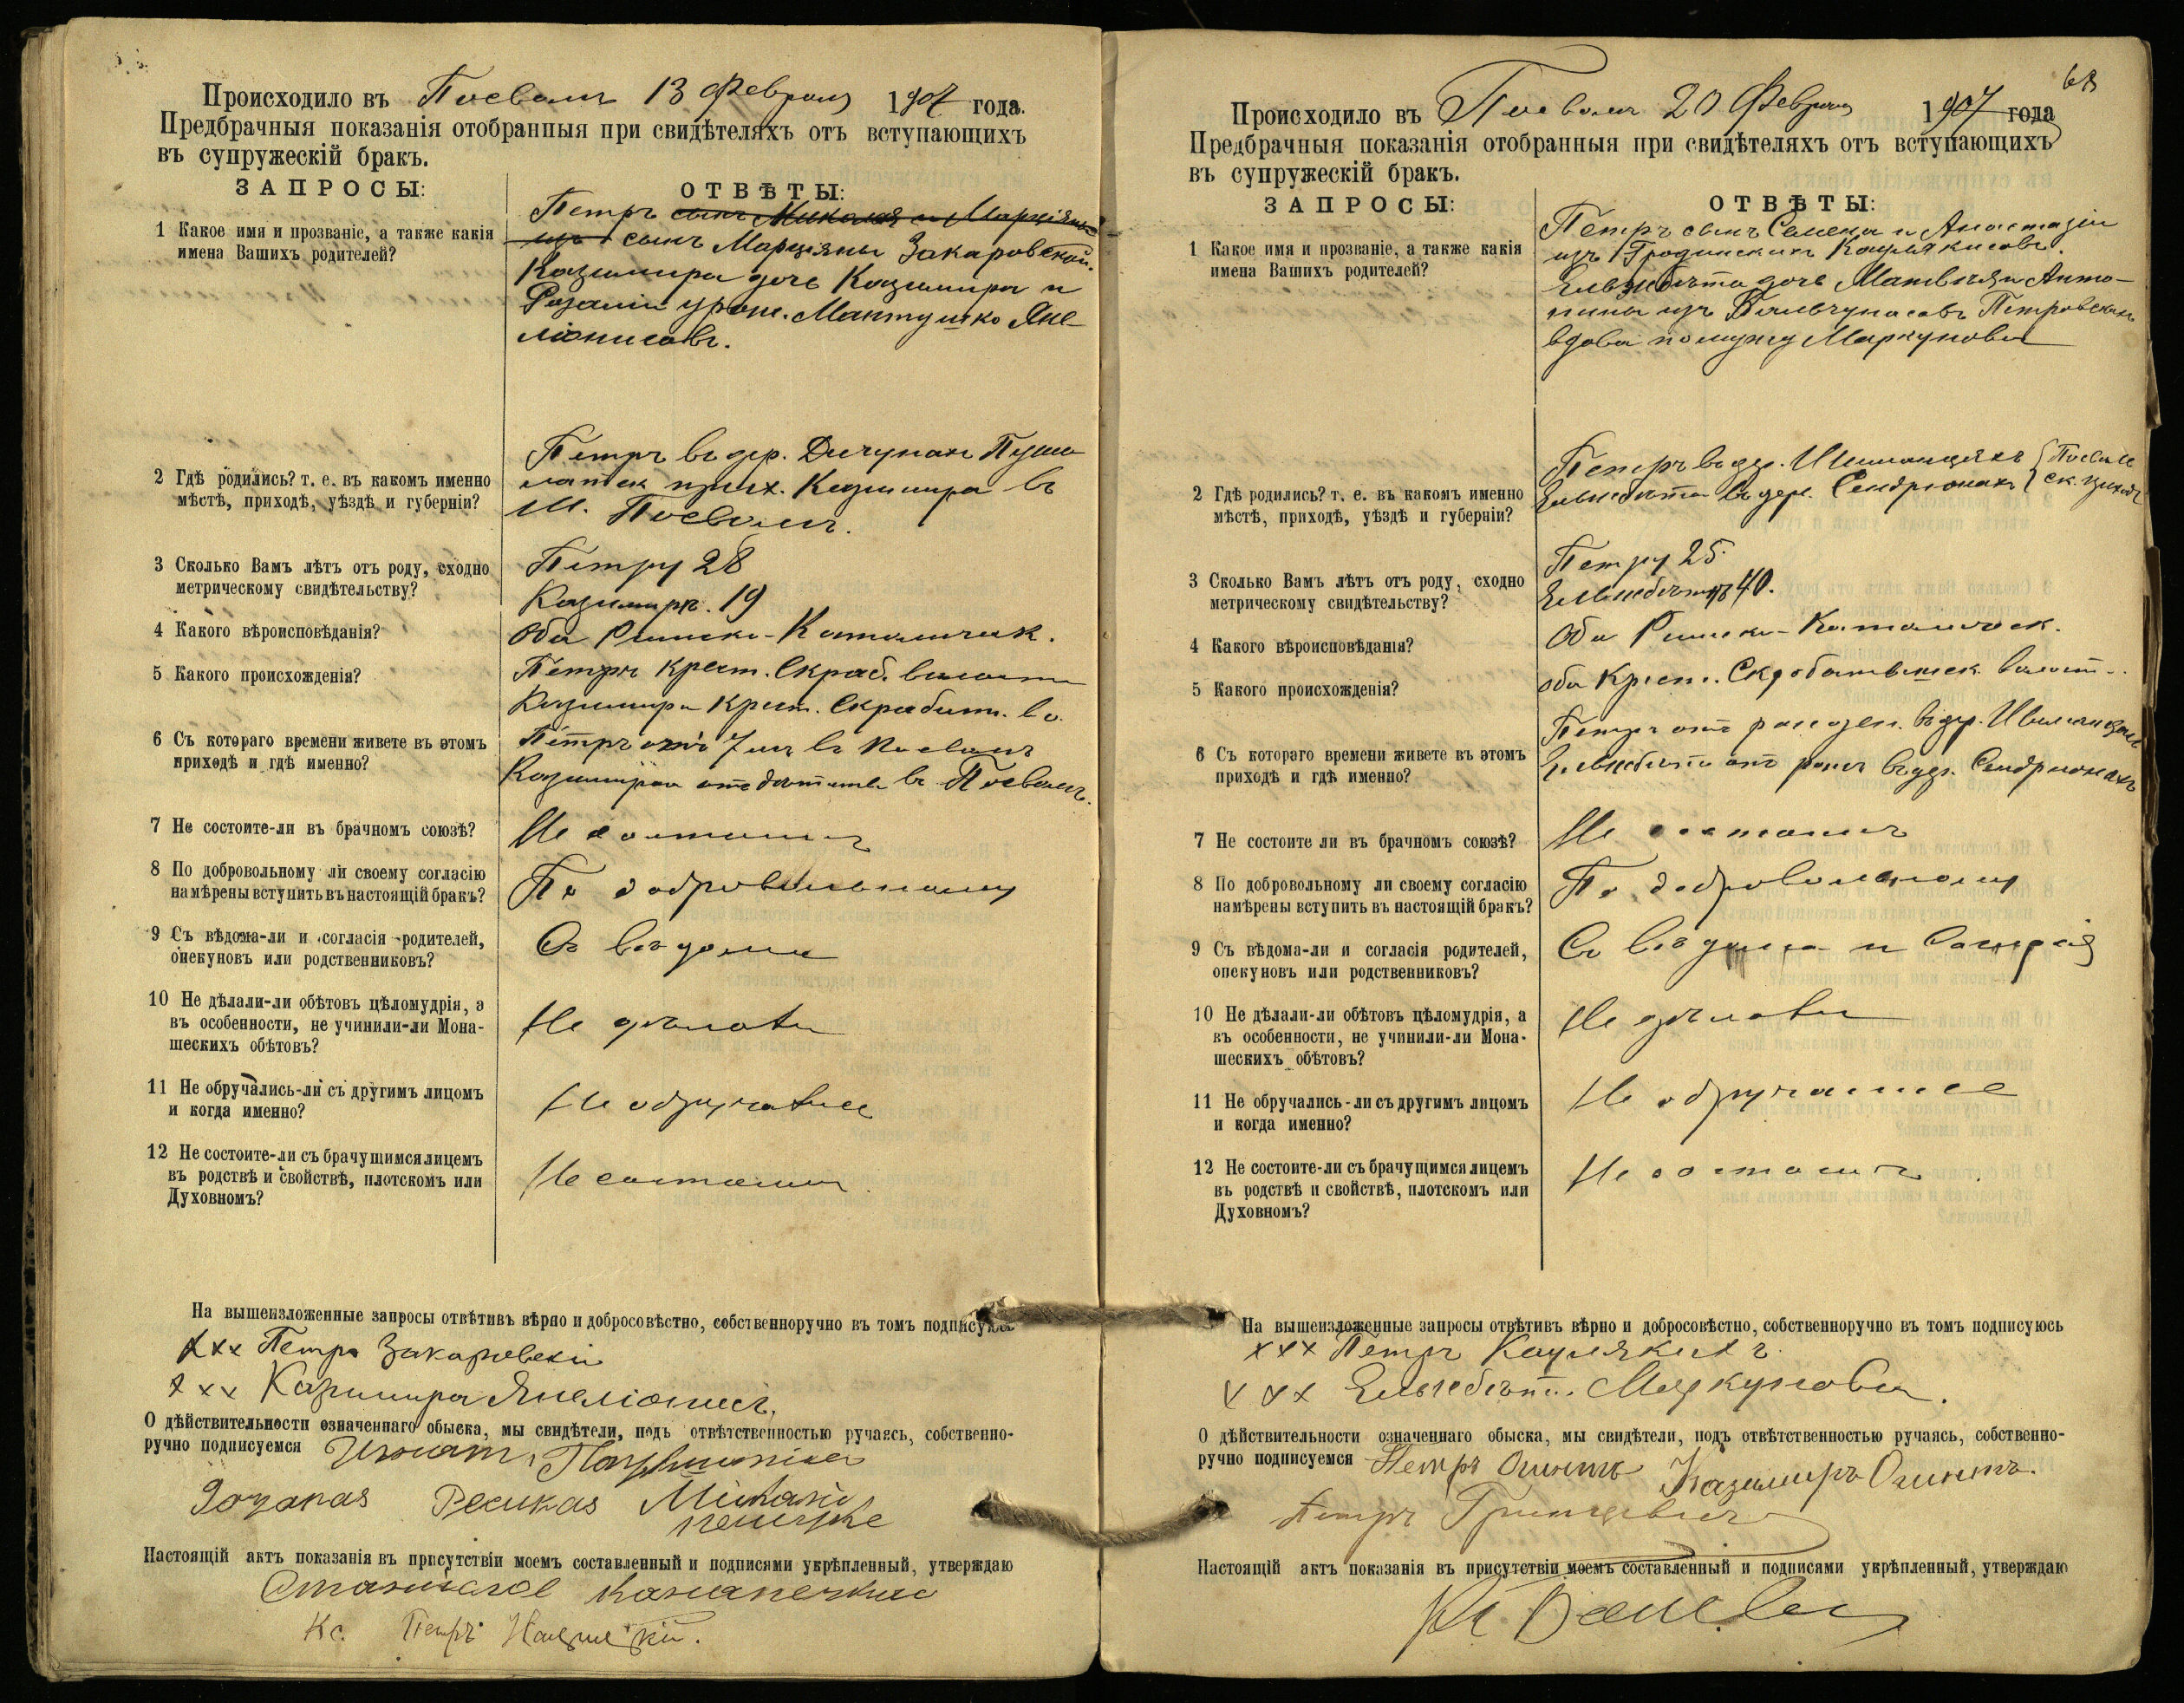 Происходило въ Посволѣ 13 Февраля 1907 года.
Предбрачныя показанія отобранныя при свидѣтеляхъ отъ вступающихъ
въ супружескій бракъ.
ЗАПРОСЫ:
ОТВѢТЫ:
1 Какое имя и прозваніе, а также какія
имена Вашихъ родителей?
Петръ сынъ Николая и Марціяны
сынъ Марціяны Закаровской.
Казимира дочь Казимира и
Розаліи урож. Мантушко Яне-
ліонисовъ.
2 Гдѣ родились? т. е. въ какомъ именно
мѣстѣ, приходѣ, уѣздѣ и губерніи?
Петръ въ дер. Пуша
прих. Казимира въ
м. Посволѣ.
3 Сколько Вамъ лѣтъ отъ роду, сходно
метрическому свидѣтельству?
Петру 28
Казимирѣ. 19
4 Какого вѣроисповѣданія?
Оба Римско-Католическ.
5 Какого происхожденія?
Петръ Крест. Скраб. волости
Казимира Крест. Скрабит. во.
6 Съ котораго времени живете въ этомъ
приходѣ и гдѣ именно?
Петръ отъ 7 въ Посволѣ
Казимира отъ дѣтства въ Посволѣ.
7 Не состоите-ли въ брачномъ союзѣ?
Не состоимъ
8 По добровольному ли своему согласію
намѣрены вступить въ настоящій бракъ?
По добровольному
9 Съ вѣдома-ли и согласія родителей,
опекуновъ или родственниковъ?
Съ вѣдома
10 Не дѣлали-ли обѣтовъ цѣломудрія, а
въ особенности, не учинили-ли Мона-
шескихъ обѣтовъ?
Не дѣлали
11 Не обручались-ли съ другимъ лицомъ
и когда именно?
Не обручались
12 Не состоите-ли съ брачущимся лицемъ
въ родствѣ и свойствѣ, плотскомъ или
Духовномъ?
Не состоимъ
На вышеизложенные запросы отвѣтивъ вѣрно и добросовѣстно, собственноручно въ томъ подписуюсь
ххх Петръ Закаровскій
ххх Казимира Янеліонисъ.
О дѣйствительности означеннаго обыска, мы свидѣтели, подъ отвѣтственностью ручаясь, собственно-
ручно подписуемся
Настоящій актъ показанія въ присутствіи моемъ составленный и подписями укрѣпленный, утверждаю
Кс. Петръ
68
Происходило въ Посволѣ 20 Февраля 1907 года
Предбрачныя показанія отобранныя при свидѣтеляхъ отъ вступающихъ
въ супружескій бракъ.
ЗАПРОСЫ:
ОТВѢТЫ:
1 Какое имя и прозваніе, а также какія
имена Вашихъ родителей?
Петръ сынъ Семена и Анастазіи
изъ Гродинскихъ Каулякисовъ.
Ельжбѣта дочь Матвѣя и Анто-
нины изъ Бальчунасовъ Петровскихъ
вдова по мужу Маркунова
2 Гдѣ родились? т. е. въ какомъ именно
мѣстѣ, приходѣ, уѣздѣ и губерніи?
Петръ въ дер.
Посволь
Ельжбѣта въ дер. Сендрюнахъ
ск. приход.
3 Сколько Вамъ лѣтъ отъ роду, сходно
метрическому свидѣтельству?
Петру 25.
Ельжбѣтѣ 40.
4 Какого вѣроисповѣданія?
Оба Римско-Католическ.
5 Какого происхожденія?
Оба Крест. Скробатишск. волост.
6 Съ котораго времени живете въ этомъ
приходѣ и гдѣ именно?
Петръ отъ рожден. въ дер.
Ельжбѣта отъ рожд въ дер. Сендрюнахъ
7 Не состоите ли въ брачномъ союзѣ?
Не состоимъ
8 По добровольному ли своему согласію
намѣрены вступить въ настоящій бракъ?
По добровольному
9 Съ вѣдома-ли и согласія родителей,
опекуновъ или родственниковъ?
Съ вѣдома и согласія
10 Не дѣлали-ли обѣтовъ цѣломудрія, а
въ особенности, не учинили-ли Мона-
шескихъ обѣтовъ?
Не дѣлали
11 Не обручались-ли съ другимъ лицомъ
и когда именно?
Не обручались
12 Не состоите-ли съ брачущимся лицемъ
въ родствѣ и свойствѣ, плотскомъ или
Духовномъ?
Не состоимъ
На вышеизложенные запросы отвѣтивъ вѣрно и добросовѣстно, собственноручно въ томъ подписуюсь
ххх Петръ Каулякисъ.
ххх Ельжбѣта Маркунова.
О дѣйствительности означеннаго обыска, мы свидѣтели, подъ отвѣтственностью ручаясь, собственно-
ручно подписуемся Петръ Огинтъ Казимиръ Огинтъ.
Петръ Гринцевичъ
Настоящій актъ показанія въ присутствіи моемъ составленный и подписями укрѣпленный, утверждаю